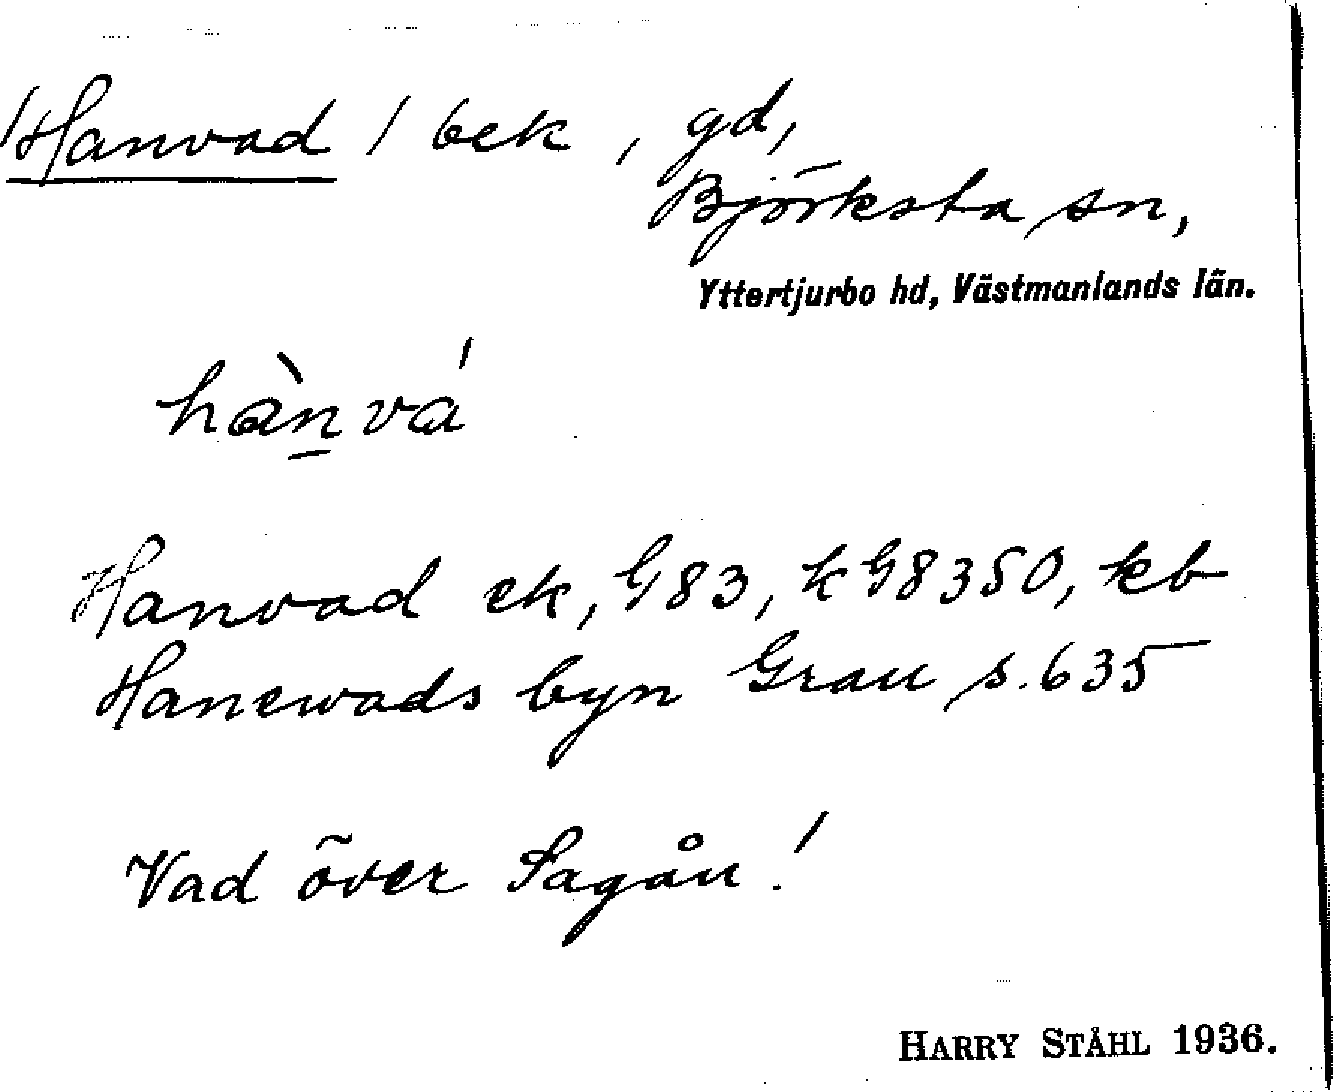 /Hanvad/ bek, gd,
Björksta sn,
Yttertjurbo hd, Västmanlands län.
hàṉvá
Hanvad ek, G83, k G8350, kb
Hanewads byn Grau s. 635
Vad över Sagån!
HARRY STÅHL 1936.